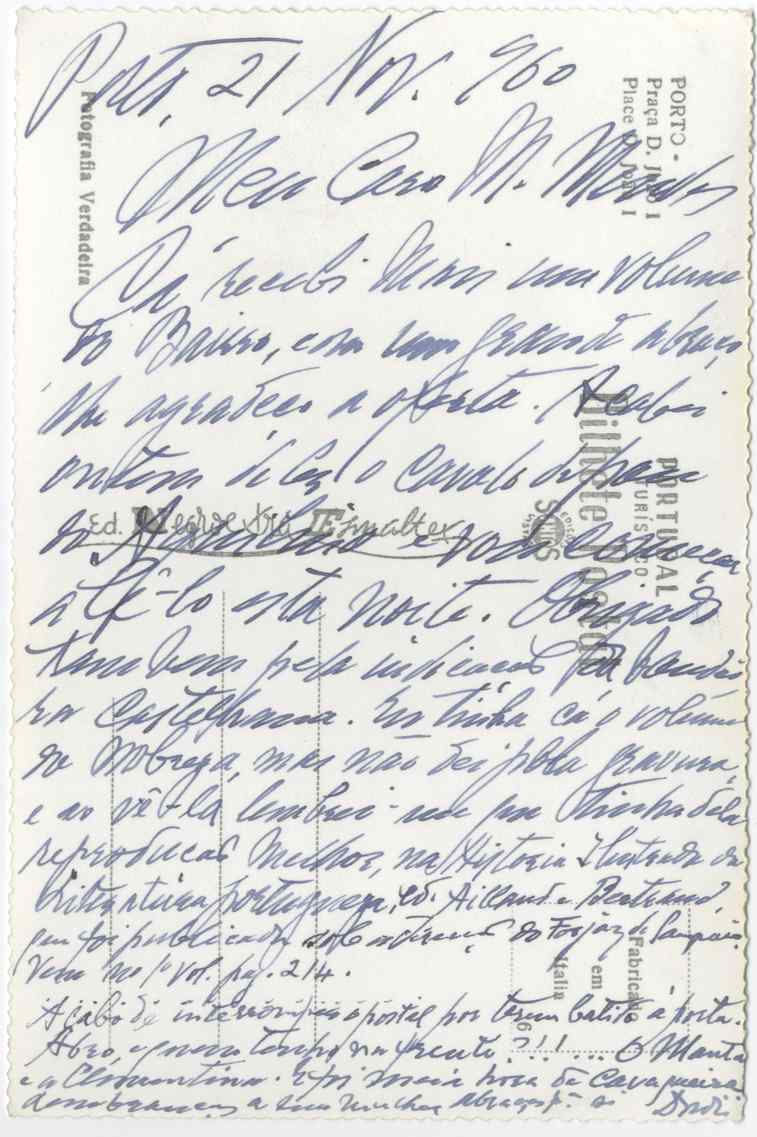 Porto, 21 Nov. 960
Meu Caro M. Mendes
Cá recebi mais um volume
do Bairro, com um grande abraço
lhe agradeço a oferta. Acabei
ontem de ler o Cavalo
do e vou começar
a lê-lo esta noite. Obrigado
tambem pela indicação da bandei
ra Castelhana. Eu tinha cá o volume
do Nobrega, mas não dei pela gravura,
e ao vê-la lembrei-me que tinha dela
reprodução melhor, na História Ilustrada da
Literatura portuguesa, ed. Aillaud e Bertrand,
que foi publicada sob a direcção do Forjaz de Sampaio.
Vem no 1º vol. pag. 214.
Acabo de interromper o postal por terem batido à porta.
Abro, e quem tenho na frente?!!... O Manta
e a Clementina. E foi meia hora de cavaqueira
Lembranças a sua mulher abraços de si
PORTO -
Praça D. João I
Place D. João I
Fotografia Verdadeira
PORTUGAL
TURÍSTICO
Bilhete Postal
Ed. Esmaltex
Fabricado
em
Italia